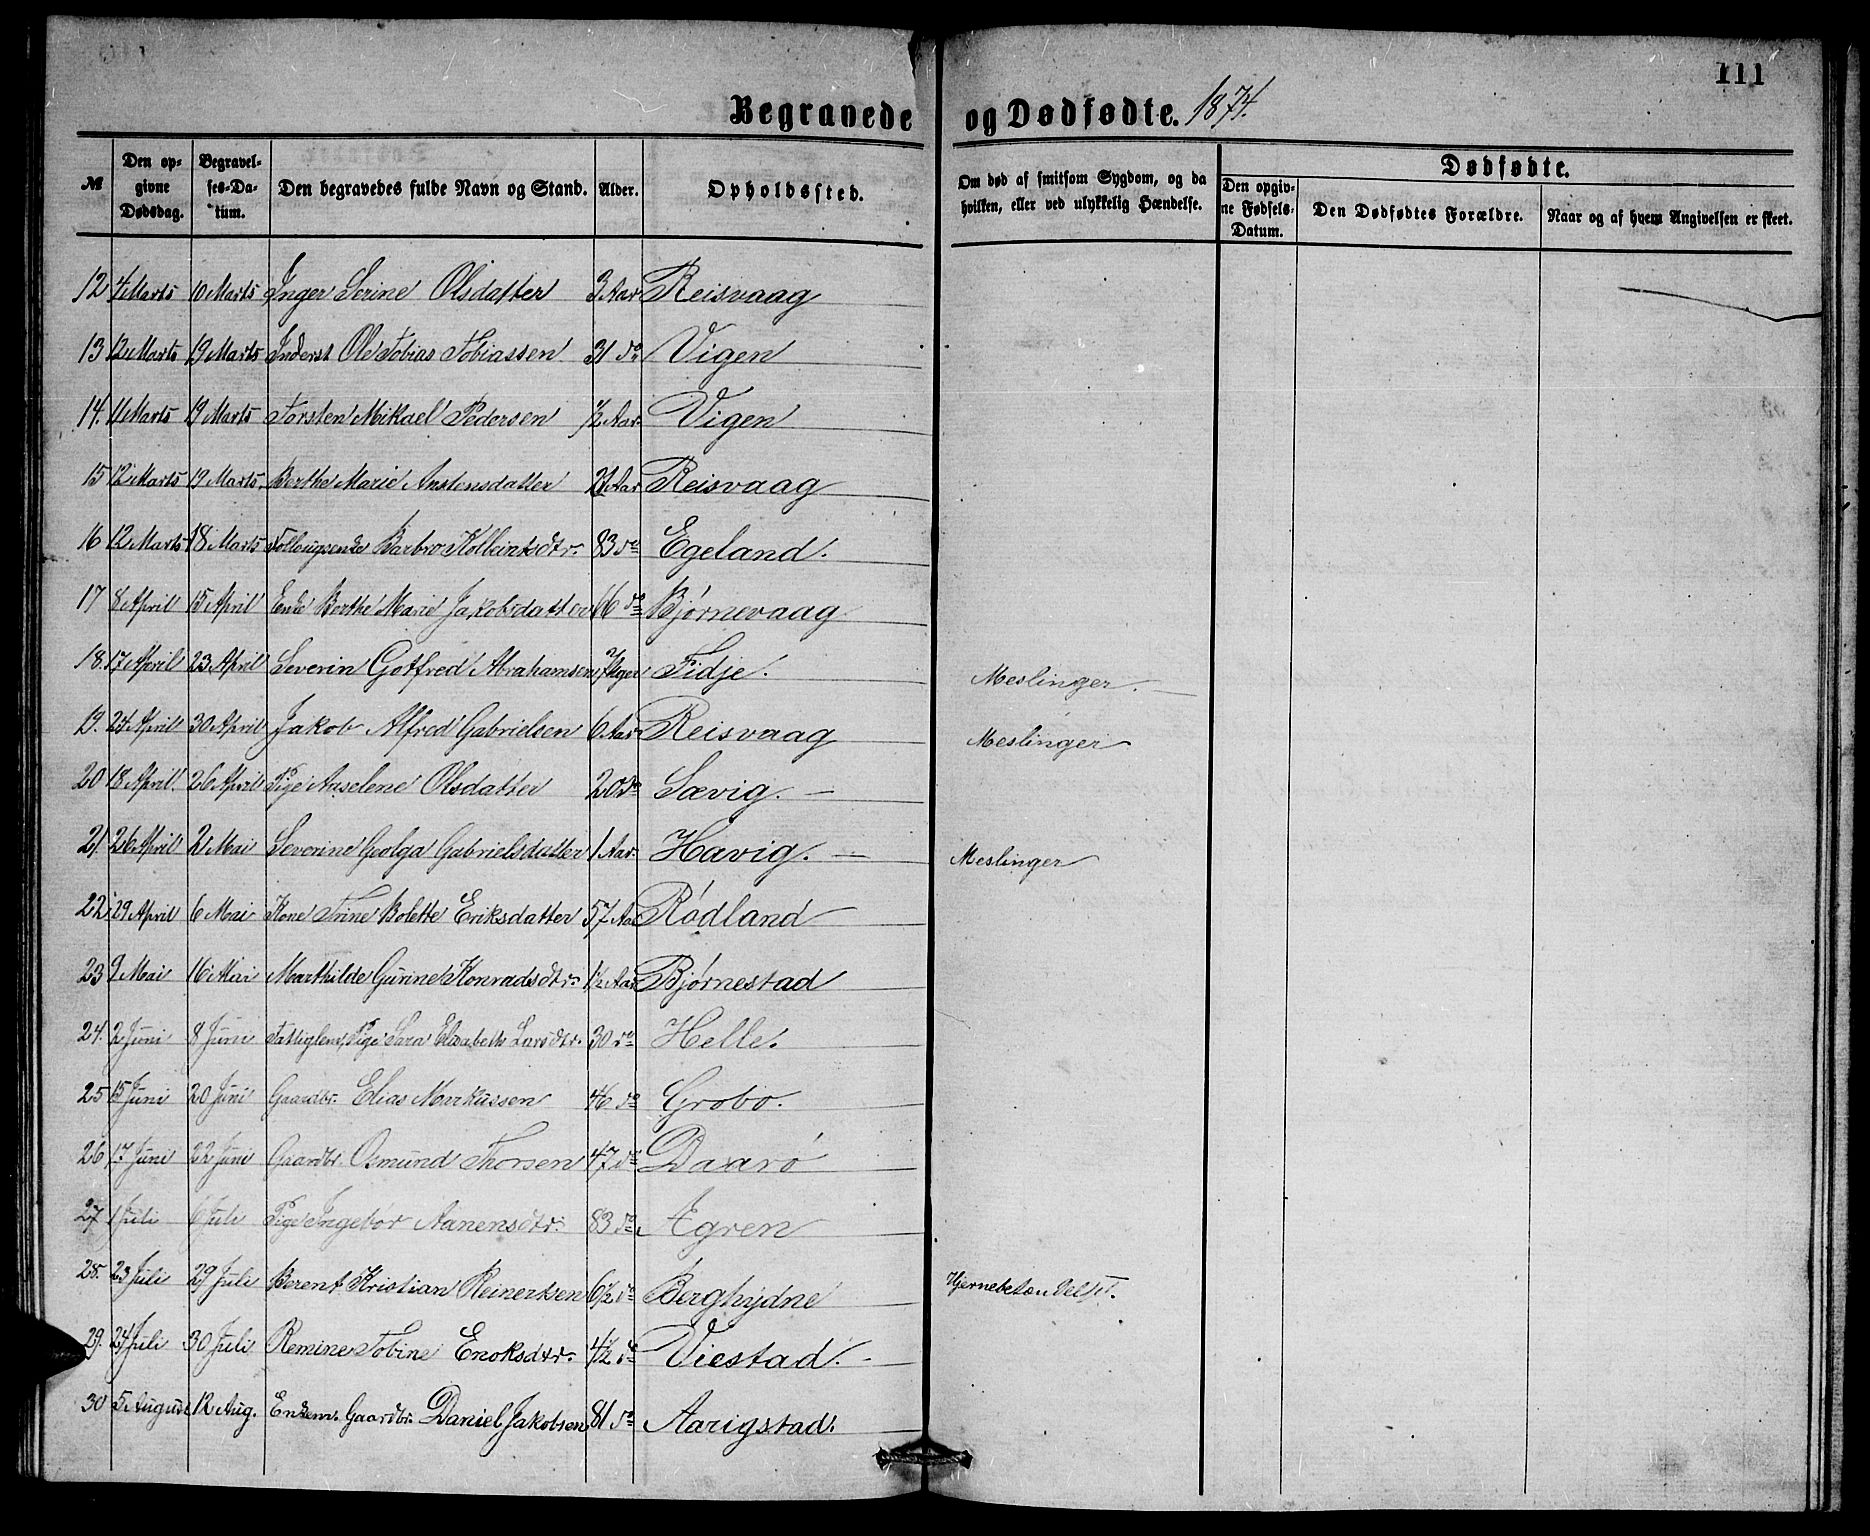 111
Begravede og Dødfødte. 1874.
№ Den opgivne Dødsdag. Begravelses-Datum. Den begravedes fulde Navn og Stand. Alder. Opholdssted. Om død af smitsom Sygdom, og da hvilken, eller ved ulykkelig Hændelse. Dødfødte. Den opgivne Fødsels-Datum. Den Dødfødtes Forældre. Naar og af hvem Angivelsen er skeet.
12 4 Marts 10 Marts Inger Serine Olsdatter 3 Aar Reisvaag
13 12 Marts 19 Marts Inderst Ole Tobias Tobiassen 31 do Vigen
14. 11 Marts 19 Marts Torsten Mikael Pedersen ½ Aar Vigen
15 12 Marts 19 Marts Berthe Marie Anstensdatter Aar Reisvaag
16 12 Marts 18 Marts Barbro Kolbeintsdtr. 83 do Egeland.
17 8 April 15 April Enke Berthe Marie Jakobsdatter 66 do Bjørnevaag
18. 17 April 23 April Severin Gotfred Abrahamsen 7 Uger Fidje. Meslinger.
19. 24 April 30 April Jakob Alfred Gabrielsen 6 Aar Reisvaag Meslinger
20 18 April 26 April Pige Anselene Olsdatter 20 do Sævig.
21. 26 April 2 Mai Severine Geolga Gabrielsdatter 1 Aar Havig. Meslinger
22 29 April 6 Mai Kone Trine Bolette Eriksdatter 57 Aar Rødland
23 9 Mai 16 Mai Marthilde Gurine Konradsdtr. 1½ Aar Bjørnestad
24. 2 Juni 8 Juni Fattiglem, Pige Sara Elisabeth Larsdtr. 30 do Helle.
25 15 Juni 20 Juni Gaardbr. Elias Markussen 46 do Grobo.
26 17 Juni 22 Juni Gaardbr. Osmund Thorsen 47 do Daarø
27 1 Juli 6 Juli Pige Ingebor Aanensdtr. 83 do Ægren
28. 23 Juli 29 Juli Berent Kristian Reinertsen 6½ do Berghydne Hjernebetændelse.
29. 24 Juli 30 Juli Remine Tobine Enoksdtr. 4½ do Viestad.
30 5 August 12 Aug. Enkem. Gaardbr. Daniel Jakobsen 81 do Aarigstad.